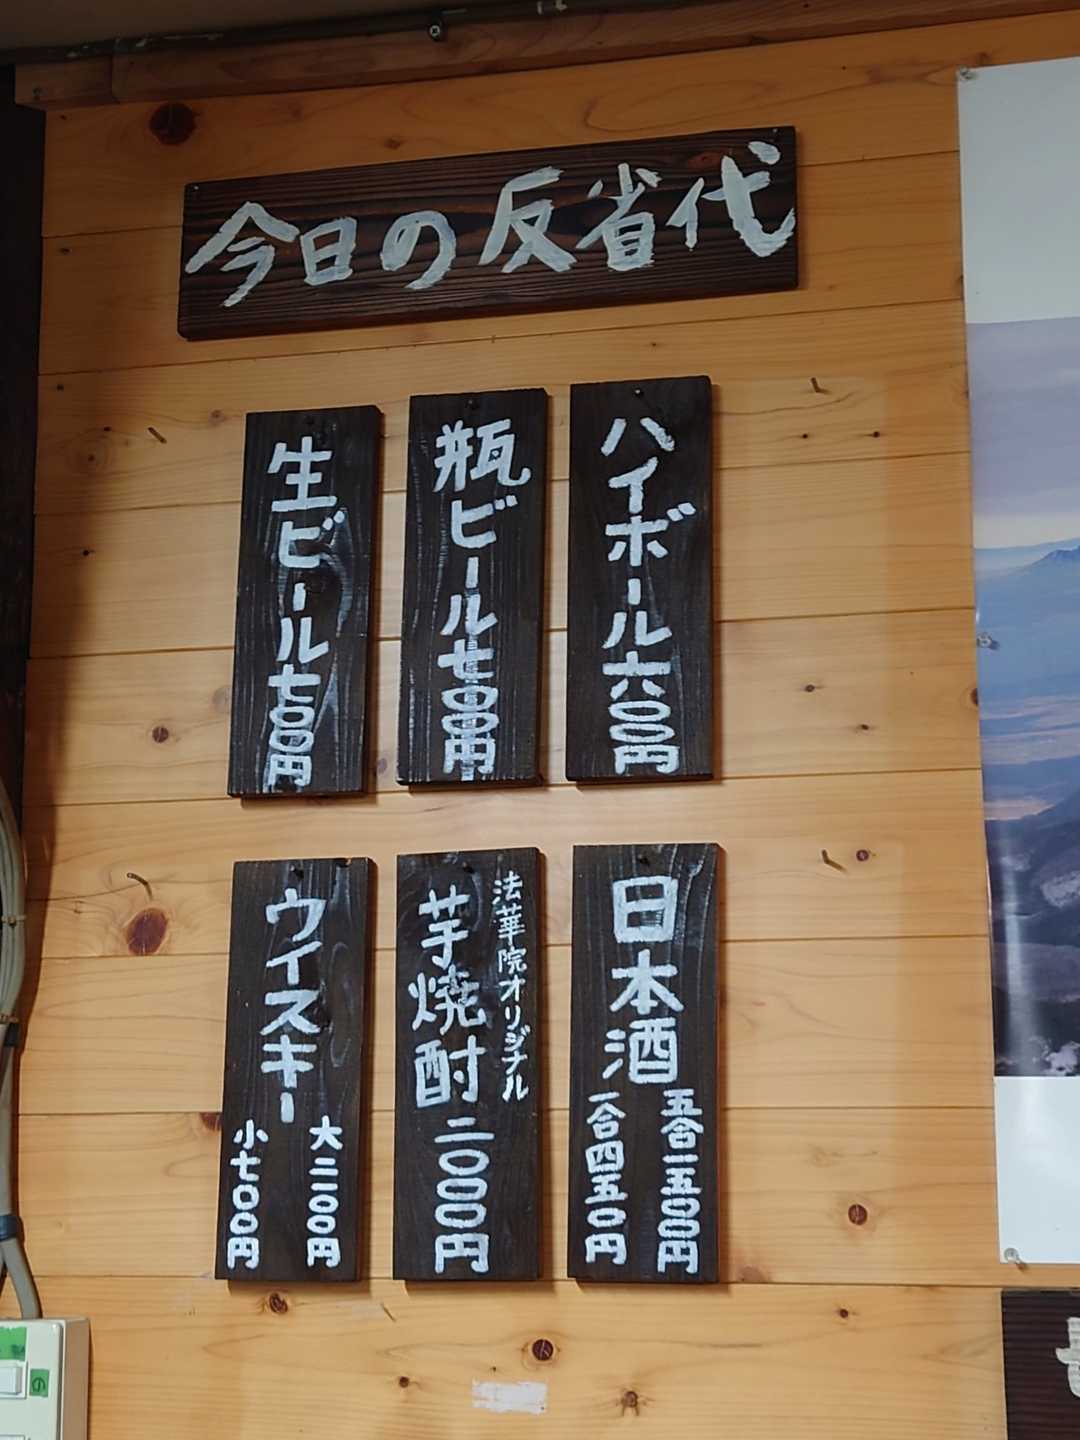 今日の反省代
ハイボール六〇〇円
瓶ビール七〇〇円
生ビール七〇〇円
日本酒
五合一五〇〇円
一合四五〇円
法華院オリジナル
芋焼酎二〇〇〇円
ウイスキー
大二一〇〇円
小七〇〇円